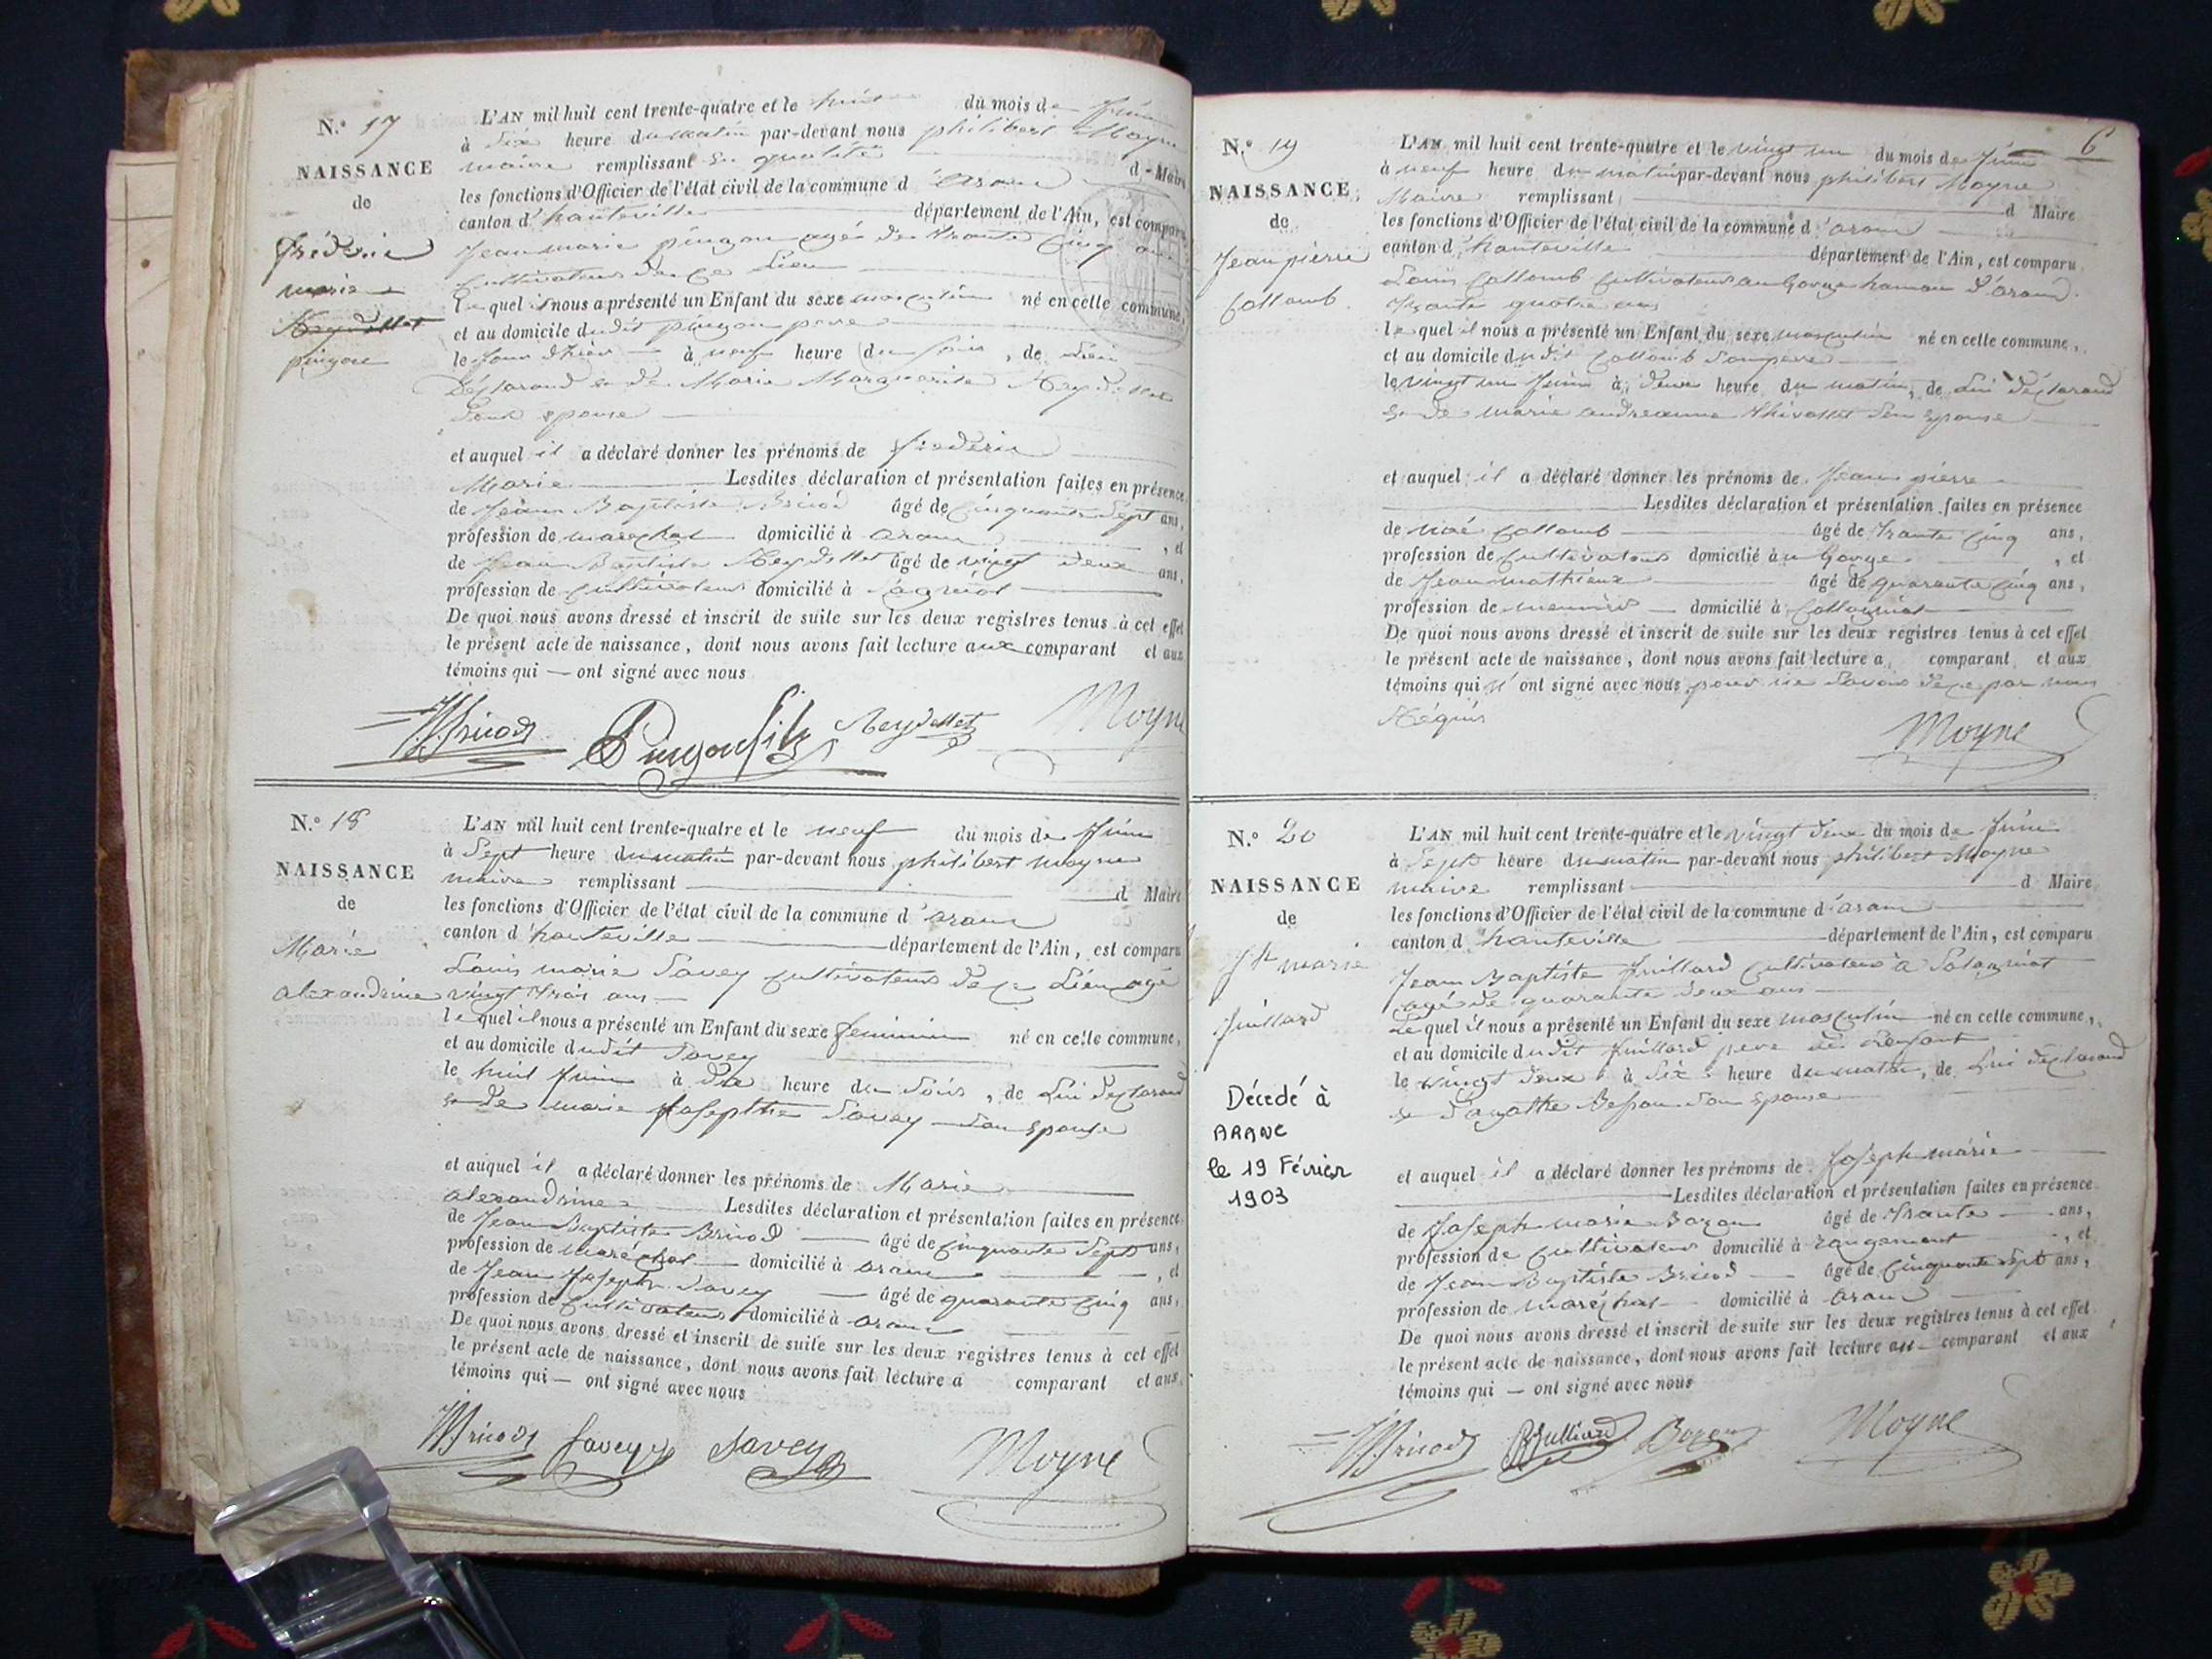 N.° 17
NAISSANCE
de
fréderic
marie
Reydellet
pingon
L'AN mil huit cent trente-quatre et le huit du mois de Juin
à Six heure du matin par-devant nous philibert Moyne
maire remplissant en qualité d Maire
les fonctions d'Officier de l'état civil de la commune d'aranc
canton d'hauteville département de l'Ain, est comparu
Jean marie pingon agé de trante Cinq ans
Cultivateur de ce Lieu
lequel il nous a présenté un Enfant du sexe masculin né en cette commune,
et au domicile dudit pingon pere
le Jour dhier à neuf heure du Soir, de Lui
déclarand et de Marie Marguerite Reydellet
Son épouse
et auquel il a déclaré donner les prénoms de frederic
Marie Lesdites déclaration et présentation faites en présence
de Jean Baptiste Bricod âgé de Cinquante Sept ans,
profession de marechal domicilié à aranc, et
de Jean Baptiste Reydellet âgé de vingt deux ans,
profession de Cultivateur domicilié à
De quoi nous avons dressé et inscrit de suite sur les deux registres tenus à cet effet
le présent acte de naissance, dont nous avons fait lecture aux comparant et aux
témoins qui — ont signé avec nous
JBricod Pingon fils Reydellet Moyne
N.° 18
NAISSANCE
de
Marie
alexandrine
L'AN mil huit cent trente-quatre et le neuf du mois de Juin
à Sept heure du matin par-devant nous philibert moyne
maire remplissant d Maire
les fonctions d'Officier de l'état civil de la commune d'aranc
canton d'hauteville département de l'Ain, est comparu
Louis marie Savey Cultivateur de ce Lieu agé
vingt trois ans
lequel il nous a présenté un Enfant du sexe feminin né en cette commune,
et au domicile dudit Savey
le huit Juin à dix heure du Soir, de Lui declarand
et de marie Josephte Savey Son Epouse
et auquel il a déclaré donner les prénoms de Marie
alexandrine Lesdites déclaration et présentation faites en présence
de Jean Baptiste Bricod âgé de Cinquante Sept ans,
profession de maréchal domicilié à aranc, et
de Jean Joseph Savey âgé de quarante Cinq ans,
profession de Cultivateur domicilié à aranc
De quoi nous avons dressé et inscrit de suite sur les deux registres tenus à cet effet
le présent acte de naissance, dont nous avons fait lecture a comparant et aux
témoins qui — ont signé avec nous
JBricod Savey Savey Moyne
6
N.° 19
NAISSANCE
de
Jean pierre
Collomb
L'AN mil huit cent trente-quatre et le vingt un du mois de Juin
à neuf heure du matin par-devant nous philibert Moyne
Maire remplissant d Maire
les fonctions d'Officier de l'état civil de la commune d'aranc
canton d'hauteville département de l'Ain, est comparu
Louis Collomb Cultivateur au Gorge hamau d'aranc
trante quatre ans
lequel il nous a présenté un Enfant du sexe masculin né en cette commune,
et au domicile dudit Collomb Son pere
le vingt un Juin à deux heure du matin, de Lui déclarand
et de marie andreanne Son epouse
et auquel il a déclaré donner les prénoms de Jean pierre
Lesdites déclaration et présentation faites en présence
de Noé Collomb âgé de trante Cinq ans,
profession de Cultivateur domicilié au Gorge, et
de Jean mathieux âgé de quarante Cinq ans,
profession de meunier domicilié à
De quoi nous avons dressé et inscrit de suite sur les deux registres tenus à cet effet
le présent acte de naissance, dont nous avons fait lecture a comparant et aux
témoins qui n'ont signé avec nous pour ne Savoir de ce par nous
Réquis
Moyne
N.° 20
NAISSANCE
de
Jh marie
Juillard
Décédé à
ARANC
le 19 Février
1903
L'AN mil huit cent trente-quatre et le vingt deux du mois de Juin
à Sept heure du matin par-devant nous philibert Moyne
maire remplissant d Maire
les fonctions d'Officier de l'état civil de la commune d'aranc
canton d'hauteville département de l'Ain, est comparu
Jean Baptiste Juillard Cultivateur à
agé de quarante deux ans
lequel il nous a présenté un Enfant du sexe masculin né en cette commune,
et au domicile dudit Juillard pere de Lenfant
le vingt deux à Six heure du matin, de Lui declarand
et d'agathe Son epouse
et auquel il a déclaré donner les prénoms de Joseph marie
Lesdites déclaration et présentation faites en présence
de Joseph marie Bozon âgé de trante ans,
profession de Cultivateur domicilié à, et
de Jean Baptiste Bricod âgé de Cinquante Sept ans,
profession de maréchal domicilié à aranc
De quoi nous avons dressé et inscrit de suite sur les deux registres tenus à cet effet
le présent acte de naissance, dont nous avons fait lecture au comparant et aux
témoins qui — ont signé avec nous
JBricod Bozon Moyne